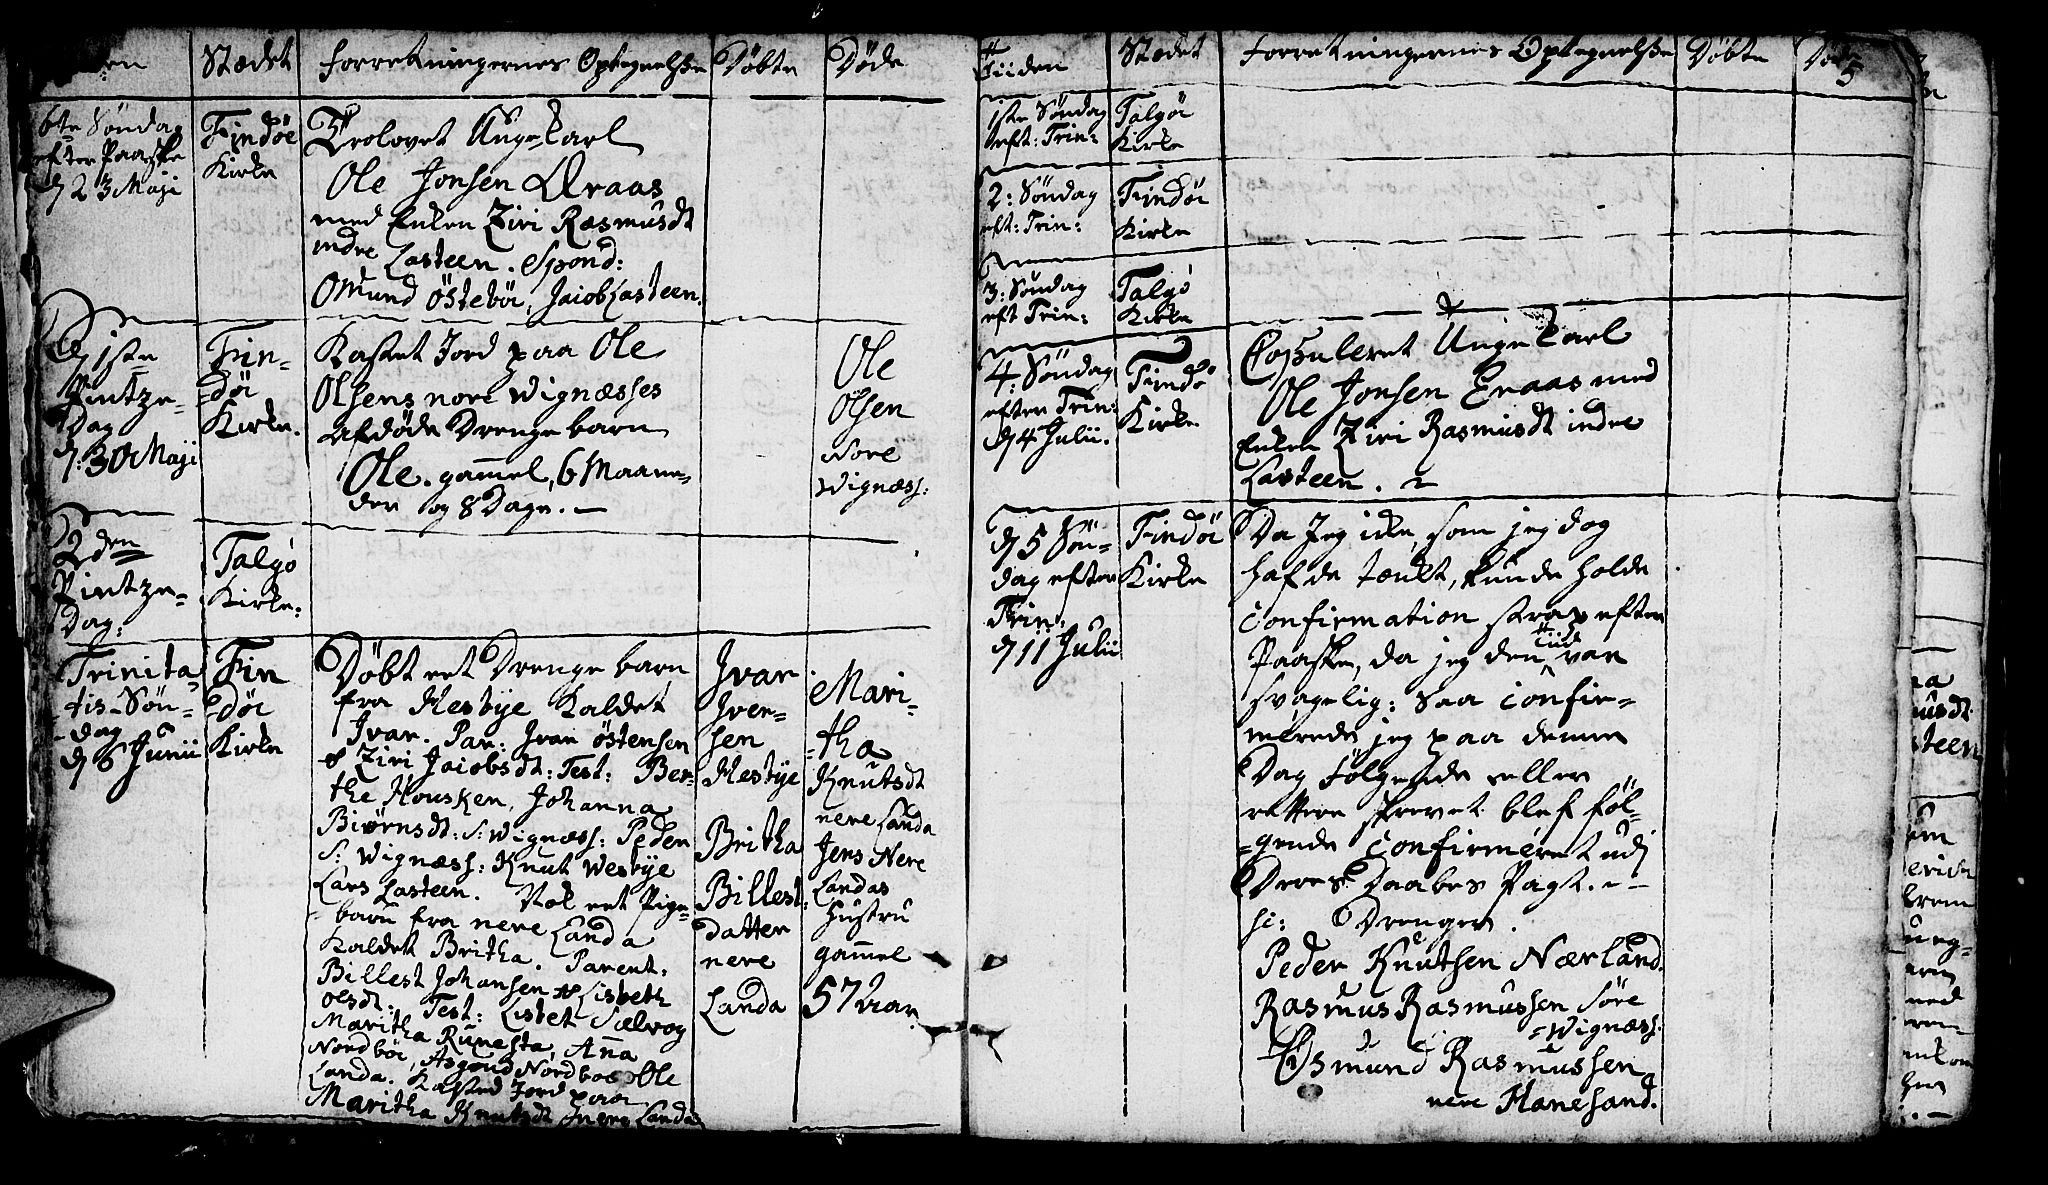 Stædet
Forretningernes Optegnelsse
Döbte
Döde
6te Söndag
efter Paaske
d 23 Maji
Findöe
Kirke
Trolovet Ungekarl
Ole Jonsen Eraas
med Enken Ziri Rasmusdt
indre Lasteen. Spond:
Omund Östebör, Jacob Lasteen.
d 1ste
Pintze-
Dag
d. 30 Maji
Fin-
döe
Kirke.
Kastet Jord paa Ole
Olsens nore Wignæsses
afdöde Drenge barn
Ole. gammel, 6 Maane-
der og 8 Dage.
Ole
Olsen
Nore
Wignæss:
2den
Pintze-
Dag:
Talgö
Kirke:
Trinita-
tis-Sön-
dag
d 6 Junii
Fin
döe
Kirke
Döbt eet Drenge barn
fra Hesbye Kaldet
Ivar. Par: Ivar Östensen
& Ziri Jacobsdt: Test: Ber-
the Housken, Johanna
Biörnsdt: S: Wignæss: Peder
S: Wignæss: Knut Wesbye
Lars Lasteen. Nok eet Pige-
barn fra nere Landa
Kaldet Britha. Parent:
Billest Johansen & Lisbeth
Olsdt: Test: Lisbet Sælvog
Maritha Runesta, Anna
Nordböe, Asgoud Nordboe Ole
Landa. Kasted Jord paa
Maritha Knutsdt Inere Landa
Ivar
Iver-
sen
Hesbye
Britha
Billest:
datter
nere
Landa
Mari-
tha
Knutsdt
nere Landa
Jens Nere
Landas
Hustru
gammel
57 aar.
Tiiden
Stædet
Forretningernes Optegnelsse
Döbte
5
1ste Söndag
eft: Trin:
Talgöe
Kirke
2: Söndag
eft: Trin:
Findöe
Kirke
3: Söndag
eft Trin:
Talgö
Kirke
4: Söndag
efter Trin:
d 4 Julii.
Findö
Kirke
Copuleret Ungekarl
Ole Jonsen Eraas med
Enken Ziri Rasmusdt indre
Lasteen.
d 5 Sön-
dag efter
Trin:
d 11 Julii
Findöe
Kirke
Da Jeg icke, som jeg dog
hafde tænkt, kunde holde
Confirmation strax efter
Paaske, da jeg den Tiid var
svagelig: Saa Confir-
merede jeg paa denne
Dag fölgende eller
rettere skrevet blef föl-
gende Confirmeret udj
Deres Daabes Pagt.
si: Drenger.
Peder Knutsen Nærland.
Rasmus Rasmussen Söre
Wignæss.
Osmund Rasmussen
nere Hanesand.